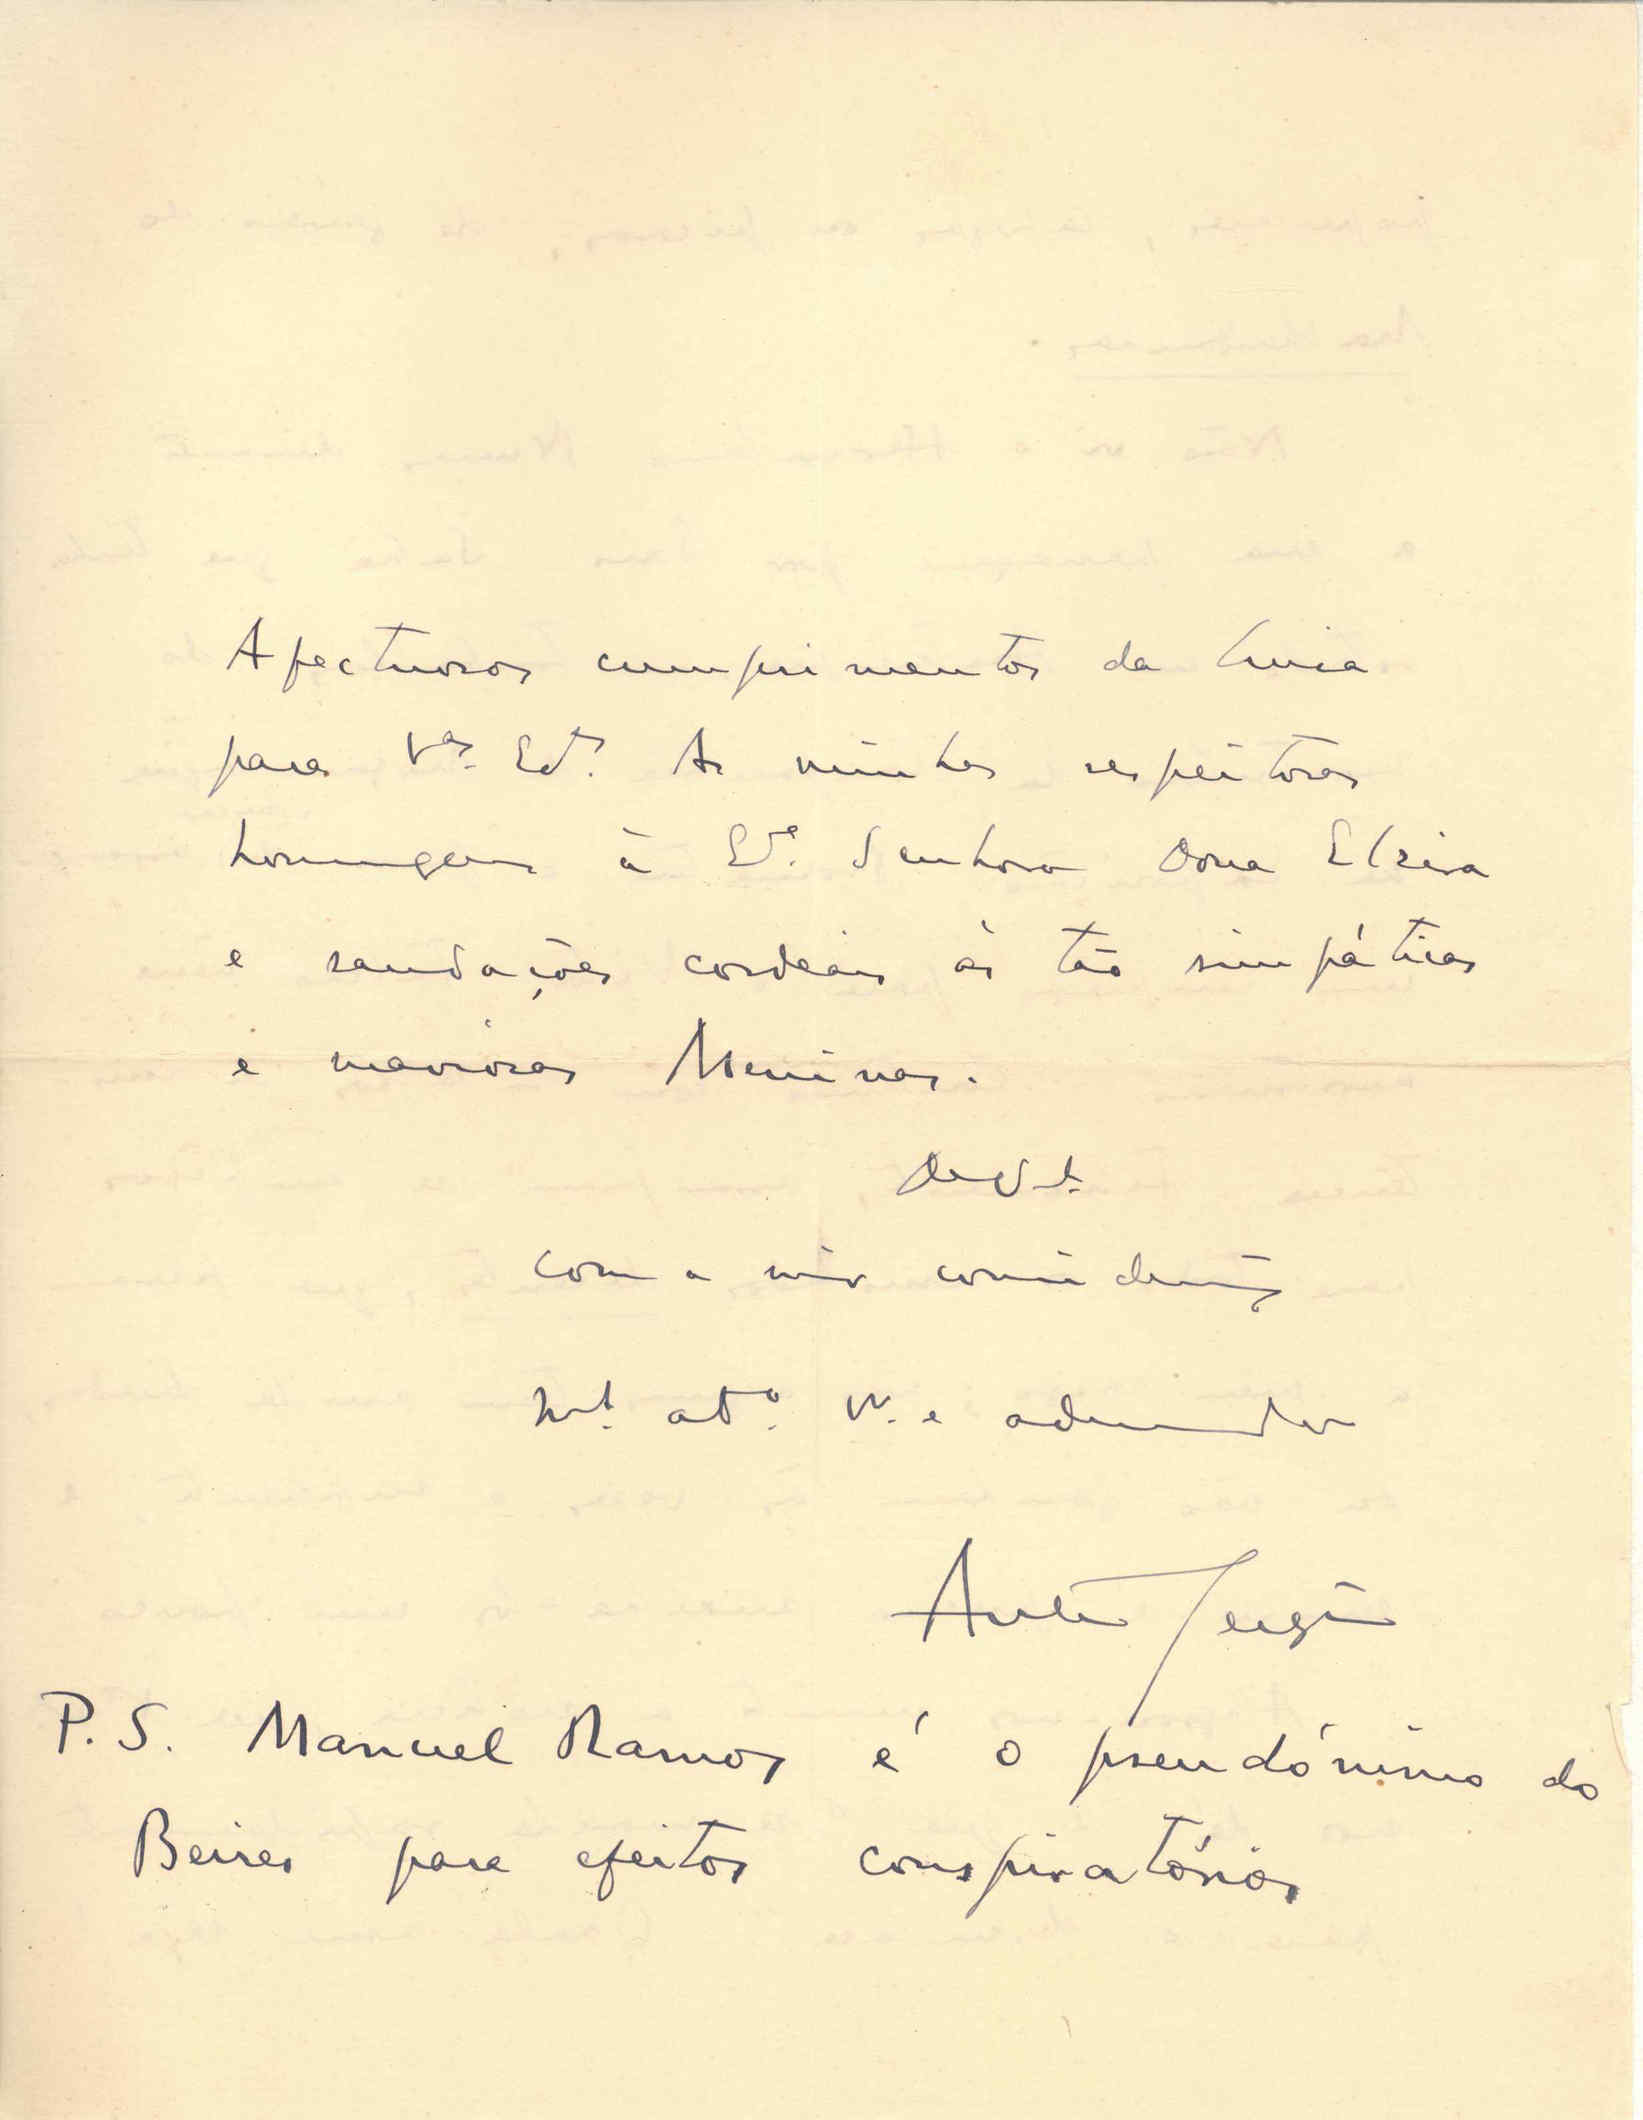 Afectuosos cumprimentos da Luísa
para V.as Ex.as As minhas respeitosas
homenagens à Ex.a Senhora Dona Elzira
e saudações cordeais às tão simpáticas
e maviosas Meninas.
De V. Ex.
com a maior consideração
m.t at.o V.or e admirador
António Sérgio
P.S. Manuel Ramos é o pseudónimo do
Beires para efeitos conspiratórios